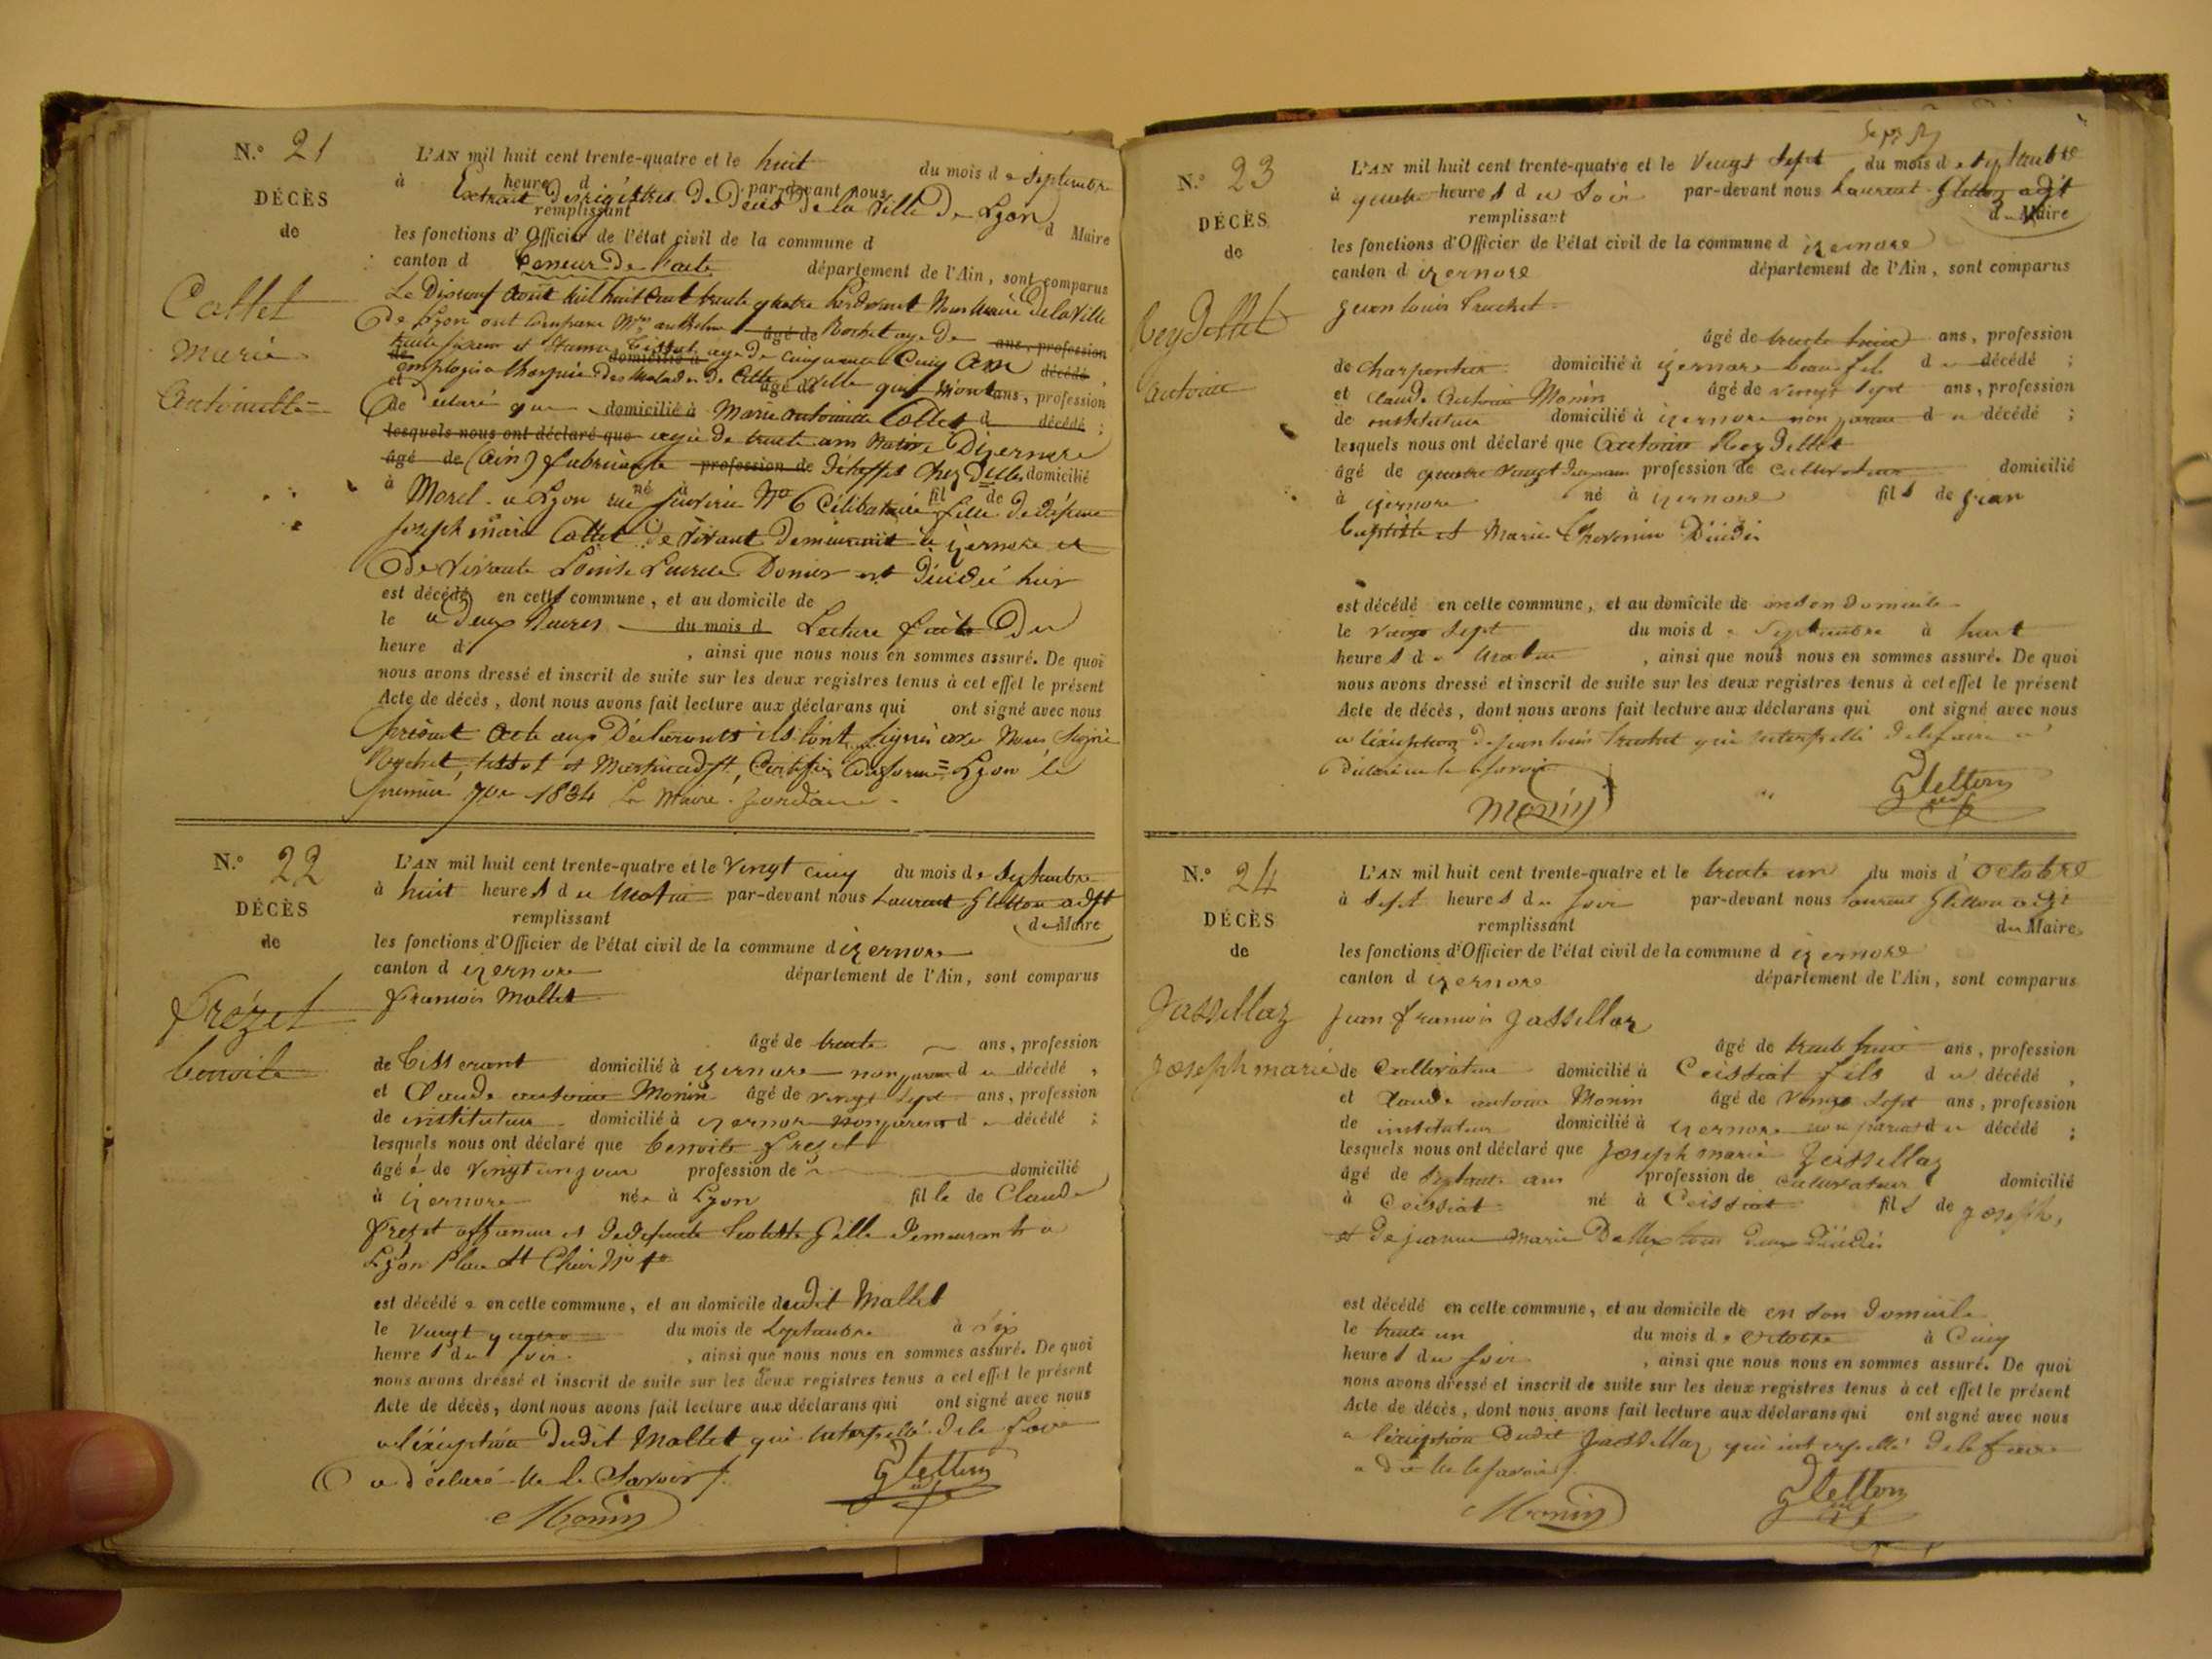 N.º 21
DÉCÈS
de
Collet
Marie
Antoinette
L'AN mil huit cent trente-quatre et le huit du mois de Septembre
à heure d par-devant nous
Extrait des registres de Décès de la Ville de Lyon
remplissant d Maire
les fonctions d'Officier de l'état civil de la commune d
canton d Teneur de l'acte département de l'Ain, sont comparus
Le Dixneuf août mil huit cent trente quatre Pardevant Nous Maire de la Ville
de Lyon ont comparu anthelme âgé de Rochet age de ans, profession
trente et Tissot age de cinquante cinq ans
de domicilié à décédé
employés a l'hospice des Malades de Cette ville qui m'ont
et âgé de ans, profession
de déclaré que domicilié à Marie antoinette Collet d décédé ;
lesquels nous ont déclaré que agée de trente ans Native D'izernore
âgé de (ain) fabricante profession de d'étoffes chez domicilié
à Morel a Lyon rue né à No 6 Célibataire fil de fille de défunt
joseph marie Collet de vivant demeurant a izernore et
de vivante Louise Donier est décédée hier
est décédé en cette commune, et au domicile de
le a deux heures du mois d Lecture faite du
heure d , ainsi que nous nous en sommes assuré. De quoi
nous avons dressé et inscrit de suite sur les deux registres tenus à cet effet le présent
Acte de décès, dont nous avons fait lecture aux déclarans qui ont signé avec nous
présent acte aux Déclarants ils l'ont signé avec Nous Signé
Rochet, tissot et Certifié Conforme = Lyon le
premier 7bre 1834 Le Maire
N.º 22
DÉCÈS
de
Frézet
benoite
L'AN mil huit cent trente-quatre et le Vingt cinq du mois de Septembre
à huit heures du Matin par-devant nous Laurent Gletton adjt
remplissant du Maire
les fonctions d'Officier de l'état civil de la commune d izernore
canton d izernore département de l'Ain, sont comparus
françois Mallet
âgé de trente ans, profession
de Tisserant domicilié à izernore non parent du décédé ,
et Claude antoine Monin âgé de vingt sept ans, profession
de instituteur domicilié à izernore non parent d décédé ;
lesquels nous ont déclaré que benoite frezet
âgé e de Vingt un jour profession de domicilié
à izernore née à Lyon fille de Claude
frezet affaneur et de defunte Gille demeurant a
Lyon Place St Clair No
est décédé e en cette commune, et au domicile dudit Mallet
le Vingt quatre du mois de Septembre à six
heures du soir , ainsi que nous nous en sommes assuré. De quoi
nous avons dressé et inscrit de suite sur les deux registres tenus à cet effet le présent
Acte de décès, dont nous avons fait lecture aux déclarans qui ont signé avec nous
a l'exception dudit Mallet qui interpellé de le faire
a déclaré ne le savoir
Gletton
Monin
N.º 23
DÉCÈS
de
Reydellet
antoine
L'AN mil huit cent trente-quatre et le Vingt Sept du mois de septembre
à quatre heures du Soir par-devant nous Laurent Gletton adjt
remplissant du Maire
les fonctions d'Officier de l'état civil de la commune d izernore
canton d izernore département de l'Ain, sont comparus
jean louis Truchet
âgé de trente ans, profession
de Charpentier domicilié à izernore beau fils du décédé ;
et Claude Antoine Monin âgé de vingt sept ans, profession
de instituteur domicilié à izernore non parent du décédé ;
lesquels nous ont déclaré que antoine Reydellet
âgé de quatre vingt ans profession de cultivateur domicilié
à izernore né à izernore fils de jean
baptiste et Marie Thevenin Décédés
est décédé en cette commune, et au domicile de en son domicile
le vingt sept du mois de Septembre à huit
heures du Matin , ainsi que nous nous en sommes assuré. De quoi
nous avons dressé et inscrit de suite sur les deux registres tenus à cet effet le présent
Acte de décès, dont nous avons fait lecture aux déclarans qui ont signé avec nous
a l'exception de jean louis truchet qui interpellé de le faire a
déclaré ne le savoir
Monin
Gletton
N.º 24
DÉCÈS
de
Jassellaz
Joseph marie
L'AN mil huit cent trente-quatre et le trente un du mois d'Octobre
à Sept heures du soir par-devant nous laurent Gletton adjt
remplissant du Maire
les fonctions d'Officier de l'état civil de la commune d izernore
canton d izernore département de l'Ain, sont comparus
jean françois Jassellaz
âgé de trente huit ans, profession
de Cultivateur domicilié à Ceissiat fils du décédé ,
et Claude antoine Monin âgé de Vingt Sept ans, profession
de instituteur domicilié à izernore non parent du décédé ;
lesquels nous ont déclaré que Joseph marie Jassellaz
âgé de Septante ans profession de cultivateur domicilié
à Ceissiat né à Ceissiat fils de joseph,
et de jeanne marie tous deux décédés
est décédé en cette commune, et au domicile de en son domicile
le trente un du mois d'octobre à Cinq
heures du soir , ainsi que nous nous en sommes assuré. De quoi
nous avons dressé et inscrit de suite sur les deux registres tenus à cet effet le présent
Acte de décès, dont nous avons fait lecture aux déclarans qui ont signé avec nous
a l'exception dudit Jassellaz qui interpellé de le faire
a dit ne le savoir
Monin
Gletton